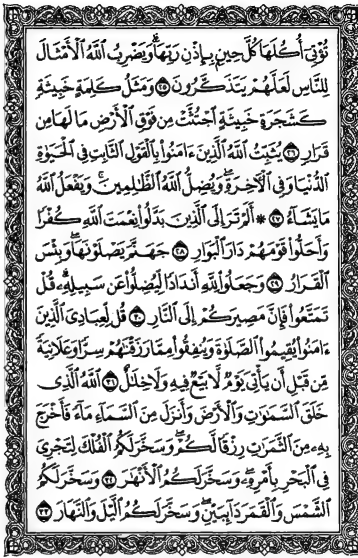 تُؤْتِىٓ أُكُلَهَا كُلَّ حِينٍۭ بِإِذْنِ رَبِّهَا ۗ وَيَضْرِبُ ٱللَّهُ ٱلْأَمْثَالَ
لِلنَّاسِ لَعَلَّهُمْ يَتَذَكَّرُونَ ٢٥ وَمَثَلُ كَلِمَةٍ خَبِيثَةٍ
كَشَجَرَةٍ خَبِيثَةٍ ٱجْتُثَّتْ مِن فَوْقِ ٱلْأَرْضِ مَا لَهَا مِن
قَرَارٍ ٢٦ يُثَبِّتُ ٱللَّهُ ٱلَّذِينَ ءَامَنُوا۟ بِٱلْقَوْلِ ٱلثَّابِتِ فِى ٱلْحَيَوٰةِ
ٱلدُّنْيَا وَفِى ٱلْـَٔاخِرَةِ ۖ وَيُضِلُّ ٱللَّهُ ٱلظَّـٰلِمِينَ ۚ وَيَفْعَلُ ٱللَّهُ
مَا يَشَآءُ ٢٧ ۞ أَلَمْ تَرَ إِلَى ٱلَّذِينَ بَدَّلُوا۟ نِعْمَتَ ٱللَّهِ كُفْرًا
وَأَحَلُّوا۟ قَوْمَهُمْ دَارَ ٱلْبَوَارِ ٢٨ جَهَنَّمَ يَصْلَوْنَهَا ۖ وَبِئْسَ
ٱلْقَرَارُ ٢٩ وَجَعَلُوا۟ لِلَّهِ أَندَادًا لِّيُضِلُّوا۟ عَن سَبِيلِهِۦ ۗ قُلْ
تَمَتَّعُوا۟ فَإِنَّ مَصِيرَكُمْ إِلَى ٱلنَّارِ ٣٠ قُل لِّعِبَادِىَ ٱلَّذِينَ
ءَامَنُوا۟ يُقِيمُوا۟ ٱلصَّلَوٰةَ وَيُنفِقُوا۟ مِمَّا رَزَقْنَـٰهُمْ سِرًّا وَعَلَانِيَةً
مِّن قَبْلِ أَن يَأْتِىَ يَوْمٌ لَّا بَيْعٌ فِيهِ وَلَا خِلَـٰلٌ ٣١ ٱللَّهُ ٱلَّذِى
خَلَقَ ٱلسَّمَـٰوَٰتِ وَٱلْأَرْضَ وَأَنزَلَ مِنَ ٱلسَّمَآءِ مَآءً فَأَخْرَجَ
بِهِۦ مِنَ ٱلثَّمَرَٰتِ رِزْقًا لَّكُمْ ۖ وَسَخَّرَ لَكُمُ ٱلْفُلْكَ لِتَجْرِىَ
فِى ٱلْبَحْرِ بِأَمْرِهِۦ ۖ وَسَخَّرَ لَكُمُ ٱلْأَنْهَـٰرَ ٣٢ وَسَخَّرَ لَكُمُ
ٱلشَّمْسَ وَٱلْقَمَرَ دَآئِبَيْنِ ۖ وَسَخَّرَ لَكُمُ ٱلَّيْلَ وَٱلنَّهَارَ ٣٣